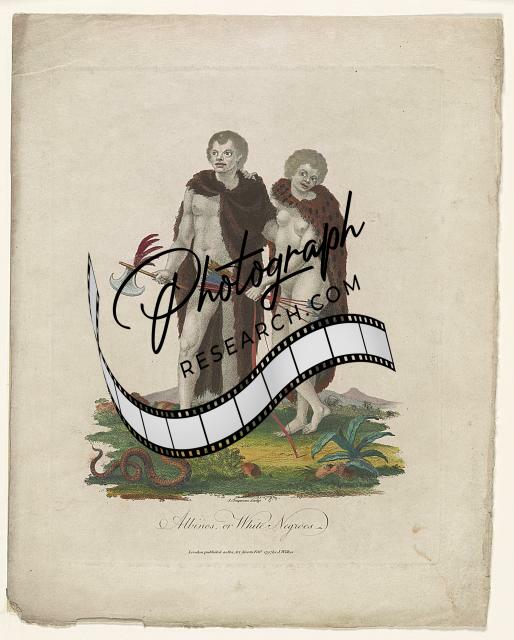 Photograph
RESEARCH.COM
Albinos, or White Negroes
London, published as the Act directs Feb.y 1797 by J. Wilkes